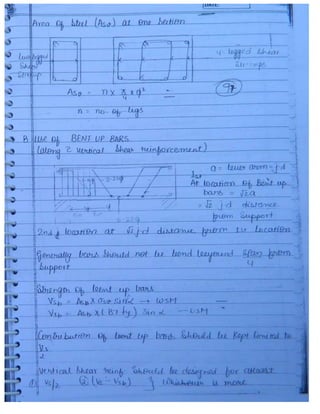 Area of Steel (Asv) at one Section
Two legged
Shear
Stirrup
4-legged Shear
Stirrups
Asv = n x π/4 x φ²
97
n = no. of legs
B. Use of BENT UP BARS
(along c vertical Shear reinforcement)
a = lever arm = j.d
1st
At location of Bent up
bars = √2 a
= √2 j.d distance
from Support
2nd location at √2 j.d distance from 1st location
Generally bars should not be bend beyond Span/4 from
Support
Strength of bent up bars
Vsb = Asb x σsv sinα → WSM
Vsb = Asb x (.87 fy) sin α — LSM
Contribution of bent up bars Should be kept limited to
Vs
2
Vertical Shear reinf Should be designed for atleast
① Vs/2 ② (Vs - Vsb) } Whichever is more